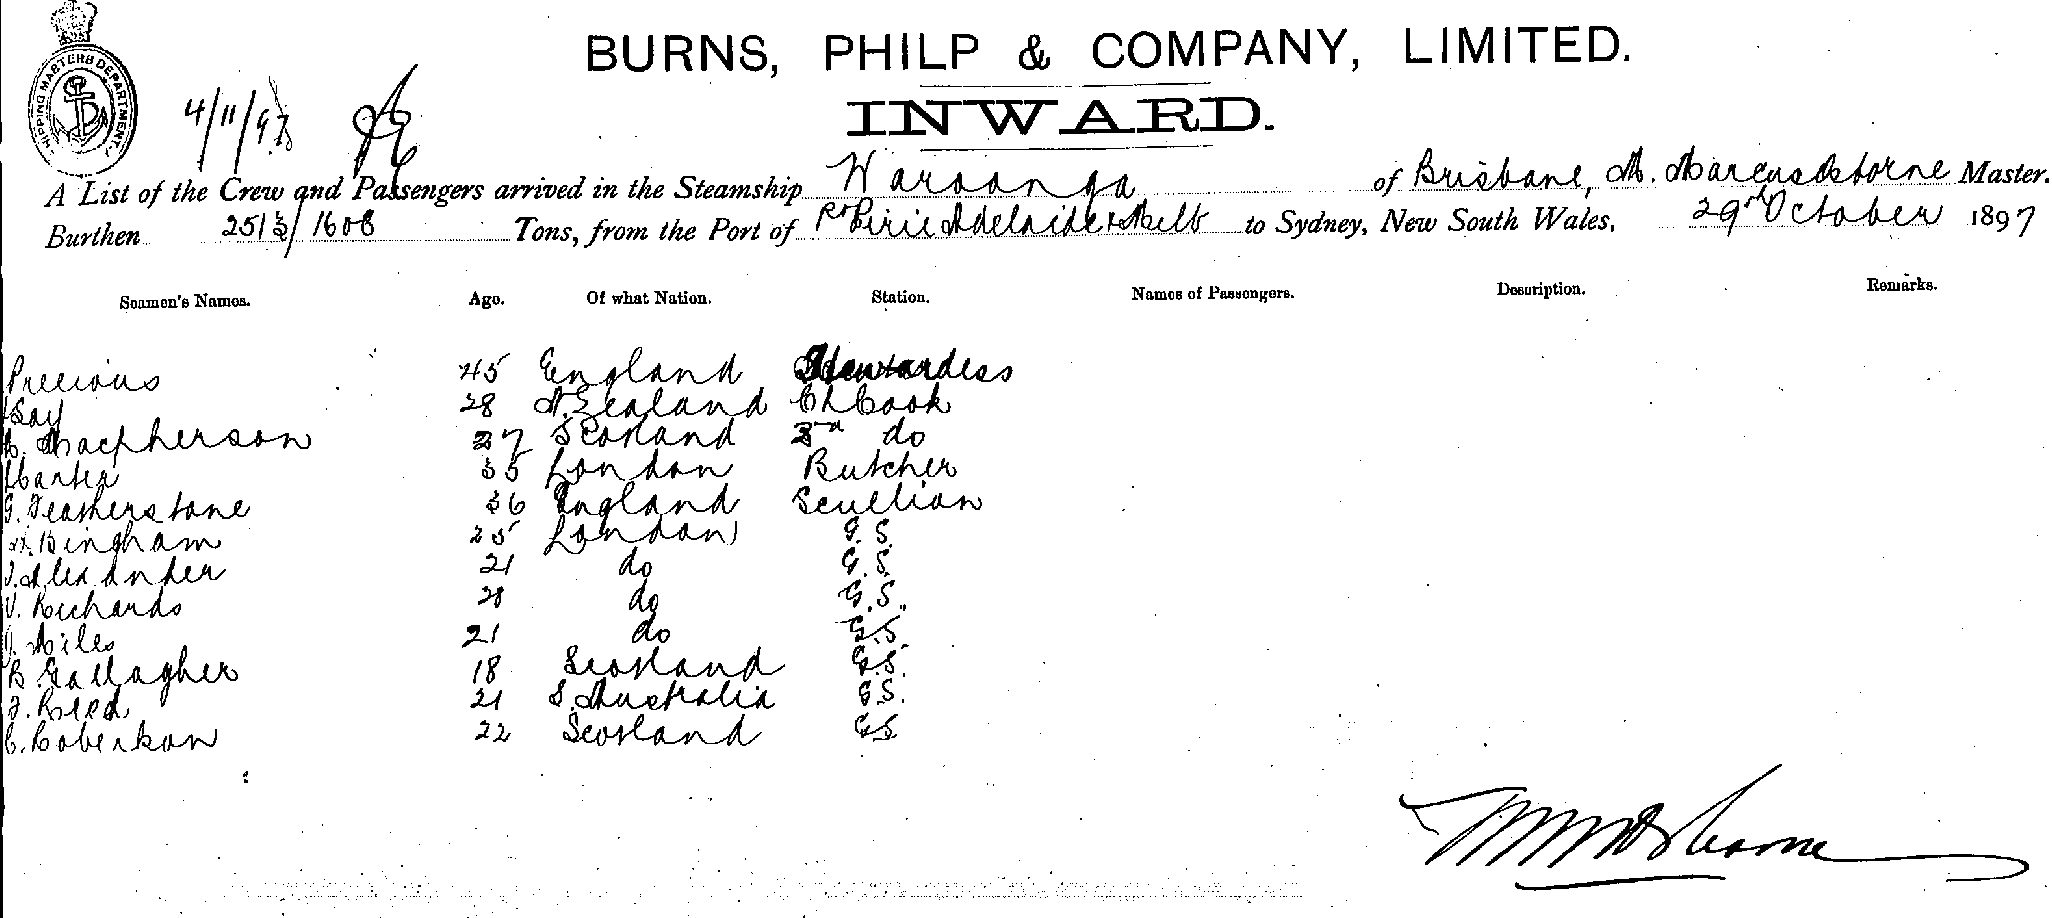 BURNS, PHILP & COMPANY, LIMITED.
INWARD.
SHIPPING MASTERS DEPARTMENT
4/11/97
A List of the Crew and Passengers arrived in the Steamship Waroonga of Brisbane, M. Marcus Osborne Master.
Burthen 2513/1608 Tons, from the Port of Pt Pirie Adelaide & Melb to Sydney, New South Wales, 29th October 1897
Seamen's Names. Age. Of what Nation. Station. Names of Passengers. Description. Remarks.
Precious 45 England Stewardess
28 N. Zealand Ch Cook
Macpherson 27 Scotland do
Carter 35 London Butcher
G. Featherstone 36 England Scullion
Bingham 25 London G.S.
Alexander 21 do G.S.
Richards 28 do G.S.
Miles 21 do G.S.
B. Gallagher 18 Scotland G.S.
F. Reed 21 S. Australia G.S.
C. Roberkson 22 Scotland G.S.